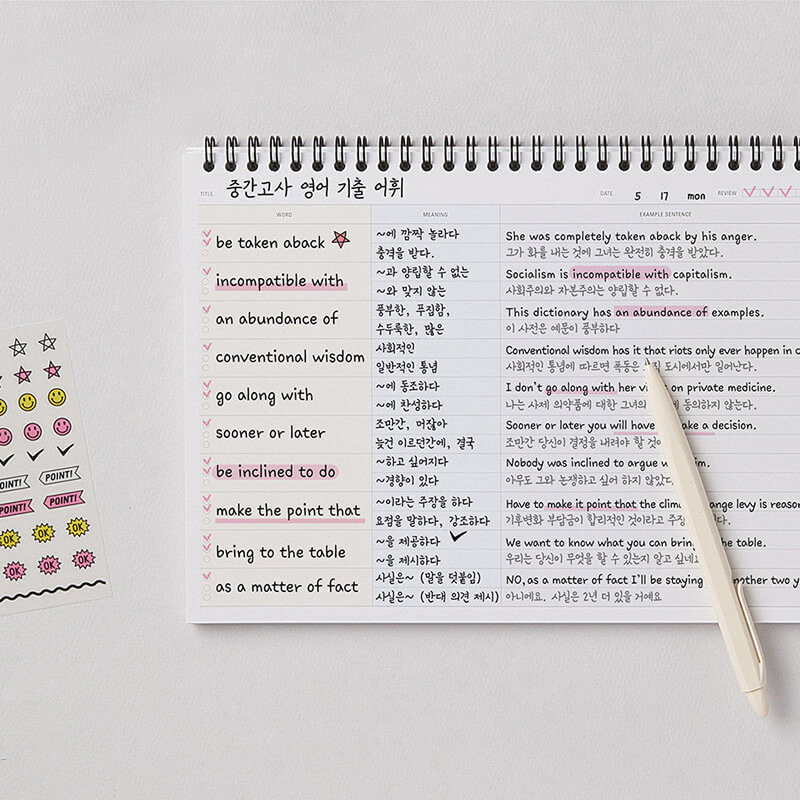 TITLE. 중간고사 영어 기출 어휘 DATE 5 17 mon REVIEW
WORD MEANING EXAMPLE SENTENCE
be taken aback ~에 깜짝 놀라다 She was completely taken aback by his anger.
충격을 받다. 그가 화를 내는 것에 그녀는 완전히 충격을 받았다.
incompatible with ~과 양립할 수 없는 Socialism is incompatible with capitalism.
~와 맞지 않는 사회주의와 자본주의는 양립할 수 없다.
an abundance of 풍부한, 푸짐함, This dictionary has an abundance of examples.
수두룩한, 많은 이 사전은 예문이 풍부하다
conventional wisdom 사회적인 Conventional wisdom has it that riots only ever happen in c
일반적인 통념 사회적인 통념에 따르면 폭동은 도시에서만 일어난다.
go along with ~에 동조하다 I don't go along with her on private medicine.
~에 찬성하다 나는 사제 의약품에 대한 그녀의 동의하지 않는다.
sooner or later 조만간, 머잖아 Sooner or later you will have a decision.
늦건 이르던간에, 결국 조만간 당신이 결정을 내려야 할
be inclined to do ~하고 싶어지다 Nobody was inclined to argue
~경향이 있다 아무도 그와 논쟁하고 싶어 하지 않았다
make the point that ~이라는 주장을 하다 Have to make it point that the levy is reason
요점을 말하다, 강조하다 기후변화 부담금이 합리적인 것이라고
bring to the table ~을 제공하다 We want to know what you can bring table.
~을 제시하다 우리는 당신이 무엇을 할 수 있는지 알고
as a matter of fact 사실은~ (말을 덧붙임) NO, as a matter of fact I'll be staying two y
사실은~ (반대 의견 제시) 아니에요. 사실은 2년 더 있을 거예요
POINT! POINT!
POINT! POINT!
OK OK OK
OK OK OK